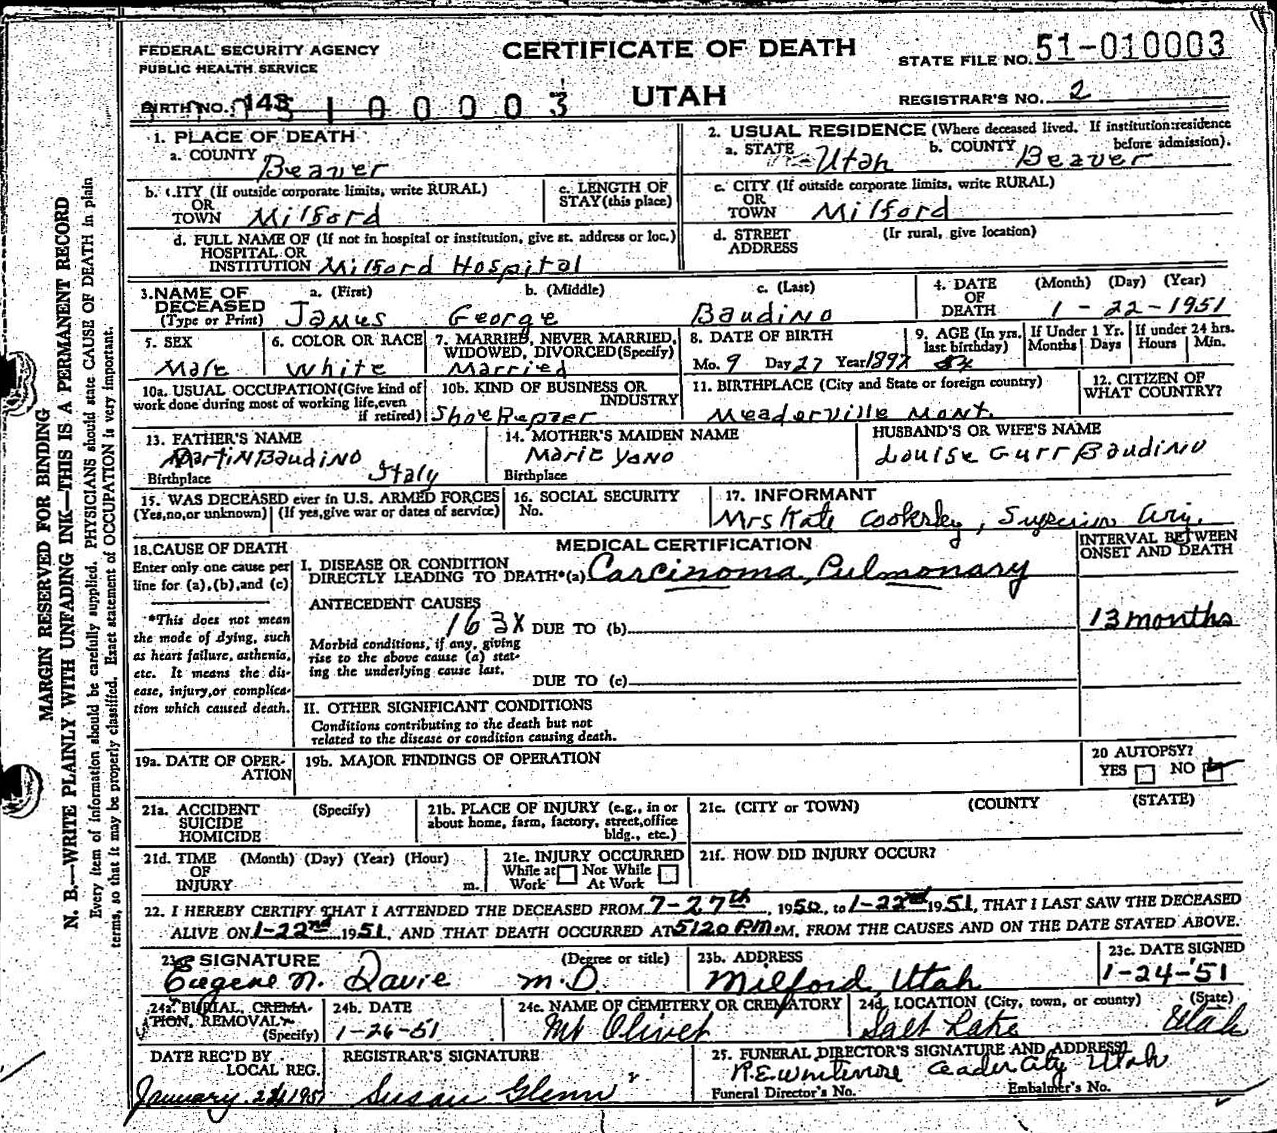 FEDERAL SECURITY AGENCY
PUBLIC HEALTH SERVICE
CERTIFICATE OF DEATH
STATE FILE NO. 51-010003
BIRTH NO. 143
UTAH
REGISTRAR'S NO. 2
MARGIN RESERVED FOR BINDING
N. B.—WRITE PLAINLY WITH UNFADING INK—THIS IS A PERMANENT RECORD
Every item of information should be carefully supplied. PHYSICIANS should state CAUSE OF DEATH in plain
terms, so that it may be properly classified. Exact statement of OCCUPATION is very important.
1. PLACE OF DEATH
a. COUNTY Beaver
2. USUAL RESIDENCE (Where deceased lived. If institution:residence before admission).
a. STATE Utah b. COUNTY Beaver
b. CITY (If outside corporate limits, write RURAL) OR TOWN Milford
c. LENGTH OF STAY (this place)
c. CITY (If outside corporate limits, write RURAL) OR TOWN Milford
d. FULL NAME OF (If not in hospital or institution, give st. address or loc.) HOSPITAL OR INSTITUTION Milford Hospital
d. STREET ADDRESS (If rural, give location)
3. NAME OF DECEASED (Type or Print) a. (First) James b. (Middle) George c. (Last) Baudino
4. DATE OF DEATH (Month) (Day) (Year) 1-22-1951
5. SEX Male
6. COLOR OR RACE White
7. MARRIED, NEVER MARRIED, WIDOWED, DIVORCED (Specify) Married
8. DATE OF BIRTH Mo. 9 Day 27 Year
9. AGE (In yrs. last birthday)
If Under 1 Yr. Months Days
If under 24 hrs. Hours Min.
10a. USUAL OCCUPATION (Give kind of work done during most of working life, even if retired)
10b. KIND OF BUSINESS OR INDUSTRY Shoe Repaer
11. BIRTHPLACE (City and State or foreign country) Meaderville Mont.
12. CITIZEN OF WHAT COUNTRY?
13. FATHER'S NAME Martin Baudino
Birthplace Italy
14. MOTHER'S MAIDEN NAME Marie Yono
Birthplace
HUSBAND'S OR WIFE'S NAME Louise Gurr Baudino
15. WAS DECEASED ever in U.S. ARMED FORCES (Yes, no, or unknown) (If yes, give war or dates of service)
16. SOCIAL SECURITY No.
17. INFORMANT Mrs Kate Cooksley, Superior Ariz.
18. CAUSE OF DEATH
Enter only one cause per line for (a), (b), and (c)
*This does not mean the mode of dying, such as heart failure, asthenia, etc. It means the disease, injury, or complication which caused death.
MEDICAL CERTIFICATION
INTERVAL BETWEEN ONSET AND DEATH
I. DISEASE OR CONDITION DIRECTLY LEADING TO DEATH*(a) Carcinoma, Pulmonary
ANTECEDENT CAUSES
163X DUE TO (b) 13 months
Morbid conditions, if any, giving rise to the above cause (a) stating the underlying cause last.
DUE TO (c)
II. OTHER SIGNIFICANT CONDITIONS
Conditions contributing to the death but not related to the disease or condition causing death.
19a. DATE OF OPERATION
19b. MAJOR FINDINGS OF OPERATION
20 AUTOPSY? YES NO
21a. ACCIDENT SUICIDE HOMICIDE (Specify)
21b. PLACE OF INJURY (e.g., in or about home, farm, factory, street, office bldg., etc.)
21c. (CITY or TOWN) (COUNTY) (STATE)
21d. TIME OF INJURY (Month) (Day) (Year) (Hour) m.
21e. INJURY OCCURRED While at Work Not While At Work
21f. HOW DID INJURY OCCUR?
22. I HEREBY CERTIFY THAT I ATTENDED THE DECEASED FROM 7-27th, 1950, to 1-22nd 1951, THAT I LAST SAW THE DECEASED
ALIVE ON 1-22nd 1951, AND THAT DEATH OCCURRED AT 5:20 P.M. M, FROM THE CAUSES AND ON THE DATE STATED ABOVE.
23a SIGNATURE Eugene N. Davie (Degree or title) M.D.
23b. ADDRESS Milford, Utah
23c. DATE SIGNED 1-24-'51
24a BURIAL, CREMATION, REMOVAL (Specify)
24b. DATE 1-26-51
24c. NAME OF CEMETERY OR CREMATORY Mt Olivet
24d. LOCATION (City, town, or county) (State) Salt Lake Utah
DATE REC'D BY LOCAL REG. January 1951
REGISTRAR'S SIGNATURE Susan Glenn
25. FUNERAL DIRECTOR'S SIGNATURE AND ADDRESS Ceader City Utah
Funeral Director's No. Embalmer's No.